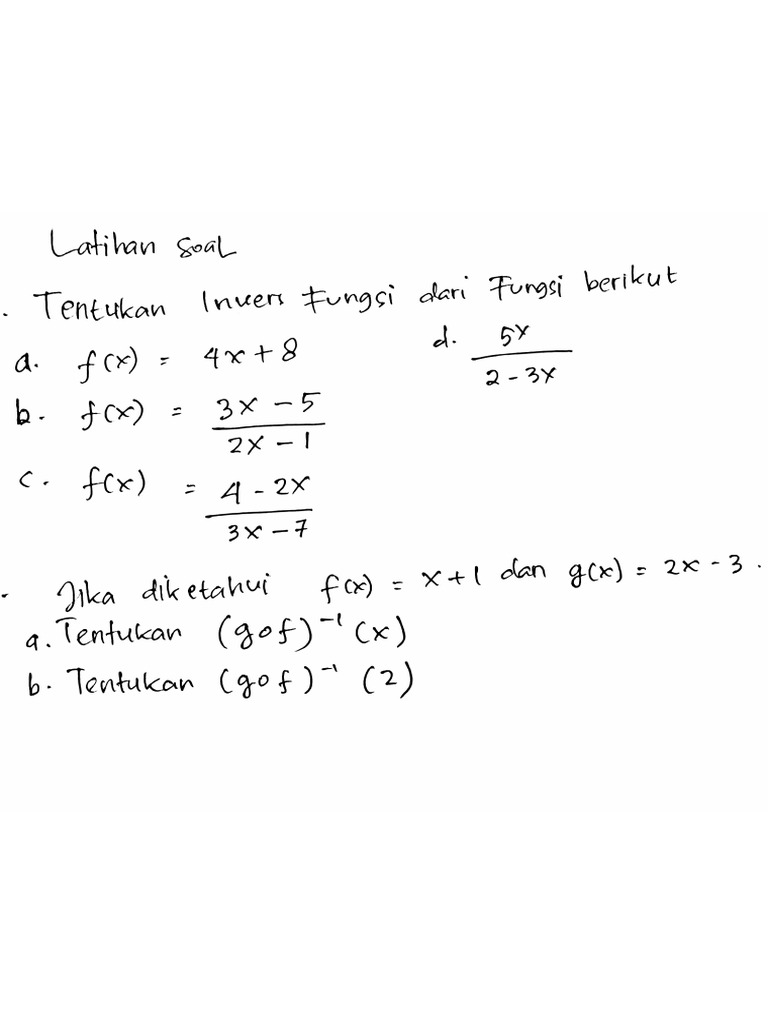 Latihan soal
. Tentukan Invers Fungsi dari Fungsi berikut
a. f(x) = 4x + 8
b. f(x) = 3x - 5 / 2x - 1
c. f(x) = 4 - 2x / 3x - 7
d. 5x / 2 - 3x
- Jika diketahui f(x) = x + 1 dan g(x) = 2x - 3 .
a. Tentukan (gof)⁻¹ (x)
b. Tentukan (gof)⁻¹ (2)